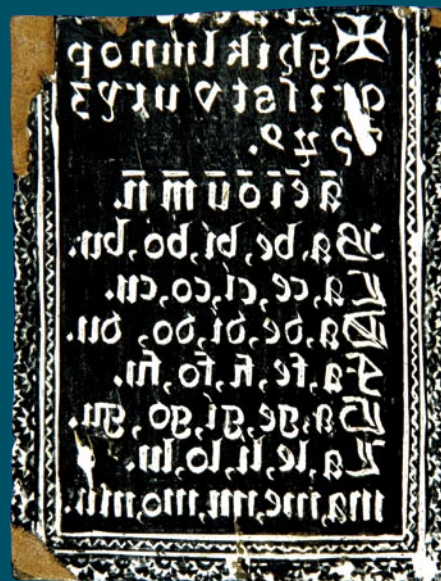 ✠ g h i k l m n o p
q r ꝛ ſ s t v u x y z
ā ē ī ō ū m̄ n̄.
Ba, be, bi, bo, bu.
Ca, ce, ci, co, cu.
Da, de, di, do, du.
Fa, fe, fi, fo, fu.
Ga, ge, gi, go, gu.
La, le, li, lo, lu.
ma, me, mi, mo, mu.